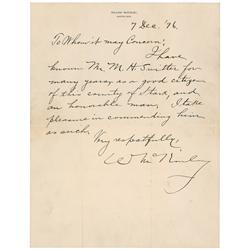 7 Dec. '96.
To Whom it may Concern:
I have
known Mr. M. H. 
for
many years, as a good citizen
of this county of Stark, and
an honorable man. I take
pleasure in commending him
as such.
Very respectfully,
W McKinley